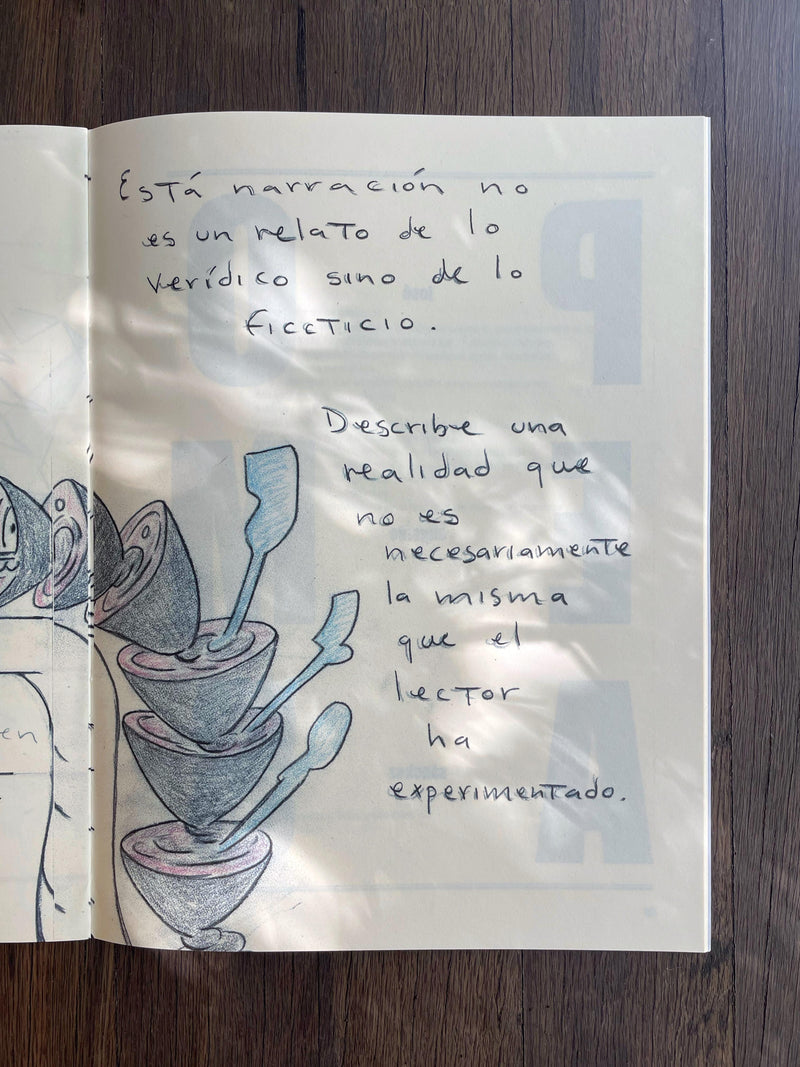 Está narración no
es un relato de lo
verídico sino de lo
ficcticio.
Describe una
realidad que
no es
necesariamente
la misma
que el
lector
ha
experimentado.
en